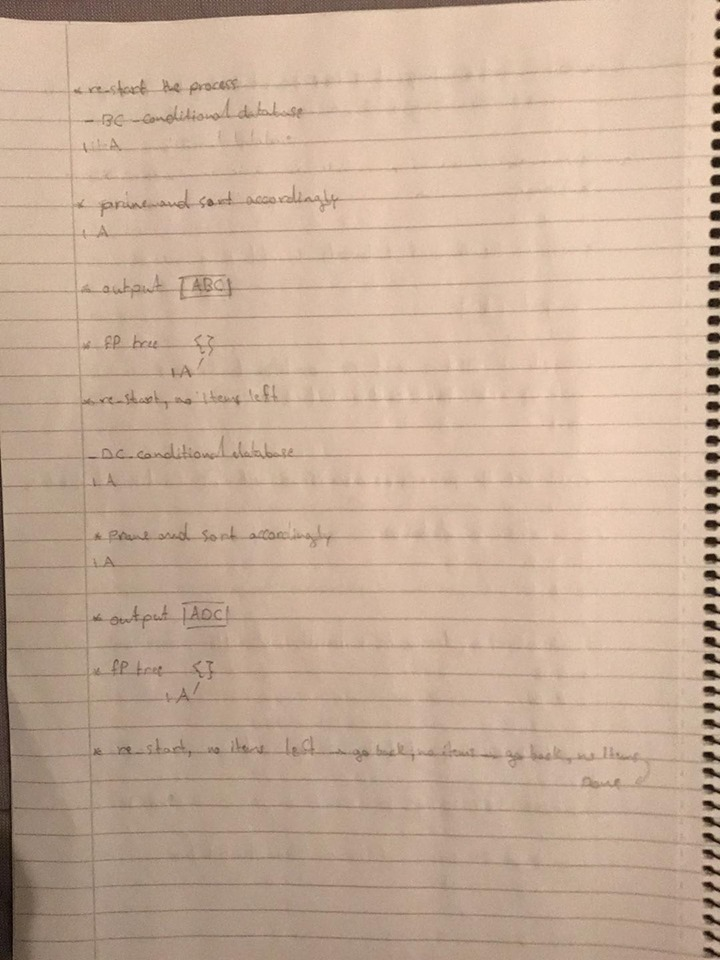 * re-start the process
- BC-conditional database
1 A
* prune and sort accordingly
1 A
* output ABC
* fP tree {}
1 A
* re-start, no items left
- DC-conditional database
1 A
* prune and sort accordingly
1 A
* output ADC
* fP tree {}
1 A
* re-start, no items left → go back, no items → go back, no items
Done